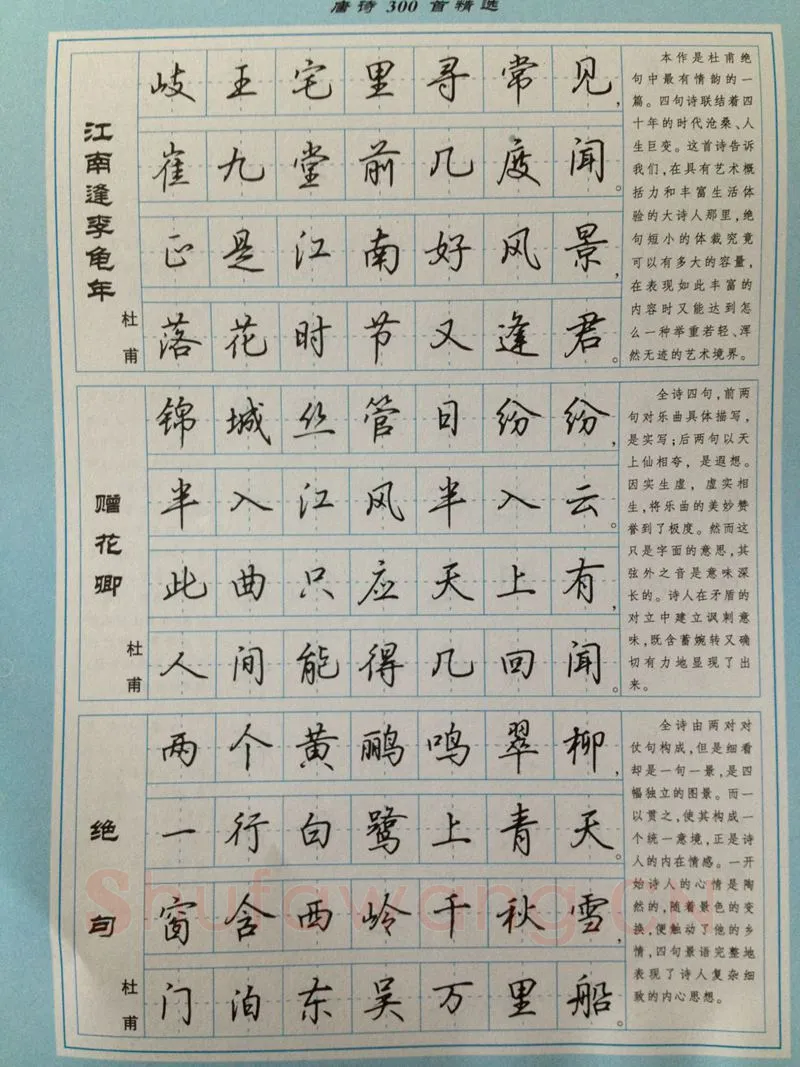 唐诗 300 首精选
江南逢李龟年
杜甫
岐王宅里寻常见，
崔九堂前几度闻。
正是江南好风景，
落花时节又逢君。
本作是杜甫绝
句中最有情韵的一
篇。四句诗联结着四
十年的时代沧桑、人
生巨变。这首诗告诉
我们，在具有艺术概
括力和丰富生活体
验的大诗人那里，绝
句短小的体裁究竟
可以有多大的容量，
在表现如此丰富的
内容时又能达到怎
么一种举重若轻、浑
然无迹的艺术境界。
赠花卿
杜甫
锦城丝管日纷纷，
半入江风半入云。
此曲只应天上有，
人间能得几回闻。
全诗四句，前两
句对乐曲具体描写，
是实写；后两句以天
上仙相夸，是遐想。
因实生虚，虚实相
生，将乐曲的美妙赞
誉到了极度。然而这
只是字面的意思，其
弦外之音是意味深
长的。诗人在矛盾的
对立中建立讽刺意
味，既含蓄婉转又确
切有力地显现了出
来。
绝句
杜甫
两个黄鹂鸣翠柳，
一行白鹭上青天。
窗含西岭千秋雪，
门泊东吴万里船。
全诗由两对对
仗句构成，但是细看
却是一句一景，是四
幅独立的图景。而一
以贯之，使其构成一
个统一意境，正是诗
人的内在情感。一开
始诗人的心情是陶
然的，随着景色的变
换，便触动了他的乡
情，四句景语完整地
表现了诗人复杂细
致的内心思想。
Shufawang.cn